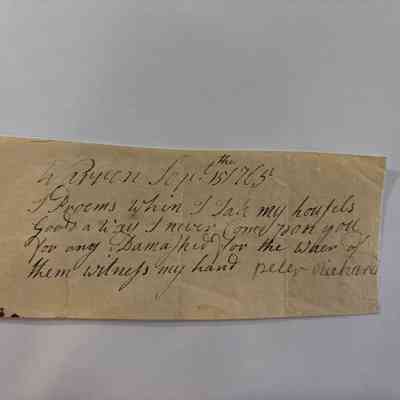 Warren Sep.t the 15 1765
I Proems when I Take my housels
Goods a way I never Come Pon you
for any Damashed for the waer of
them witness my hand peter Richard